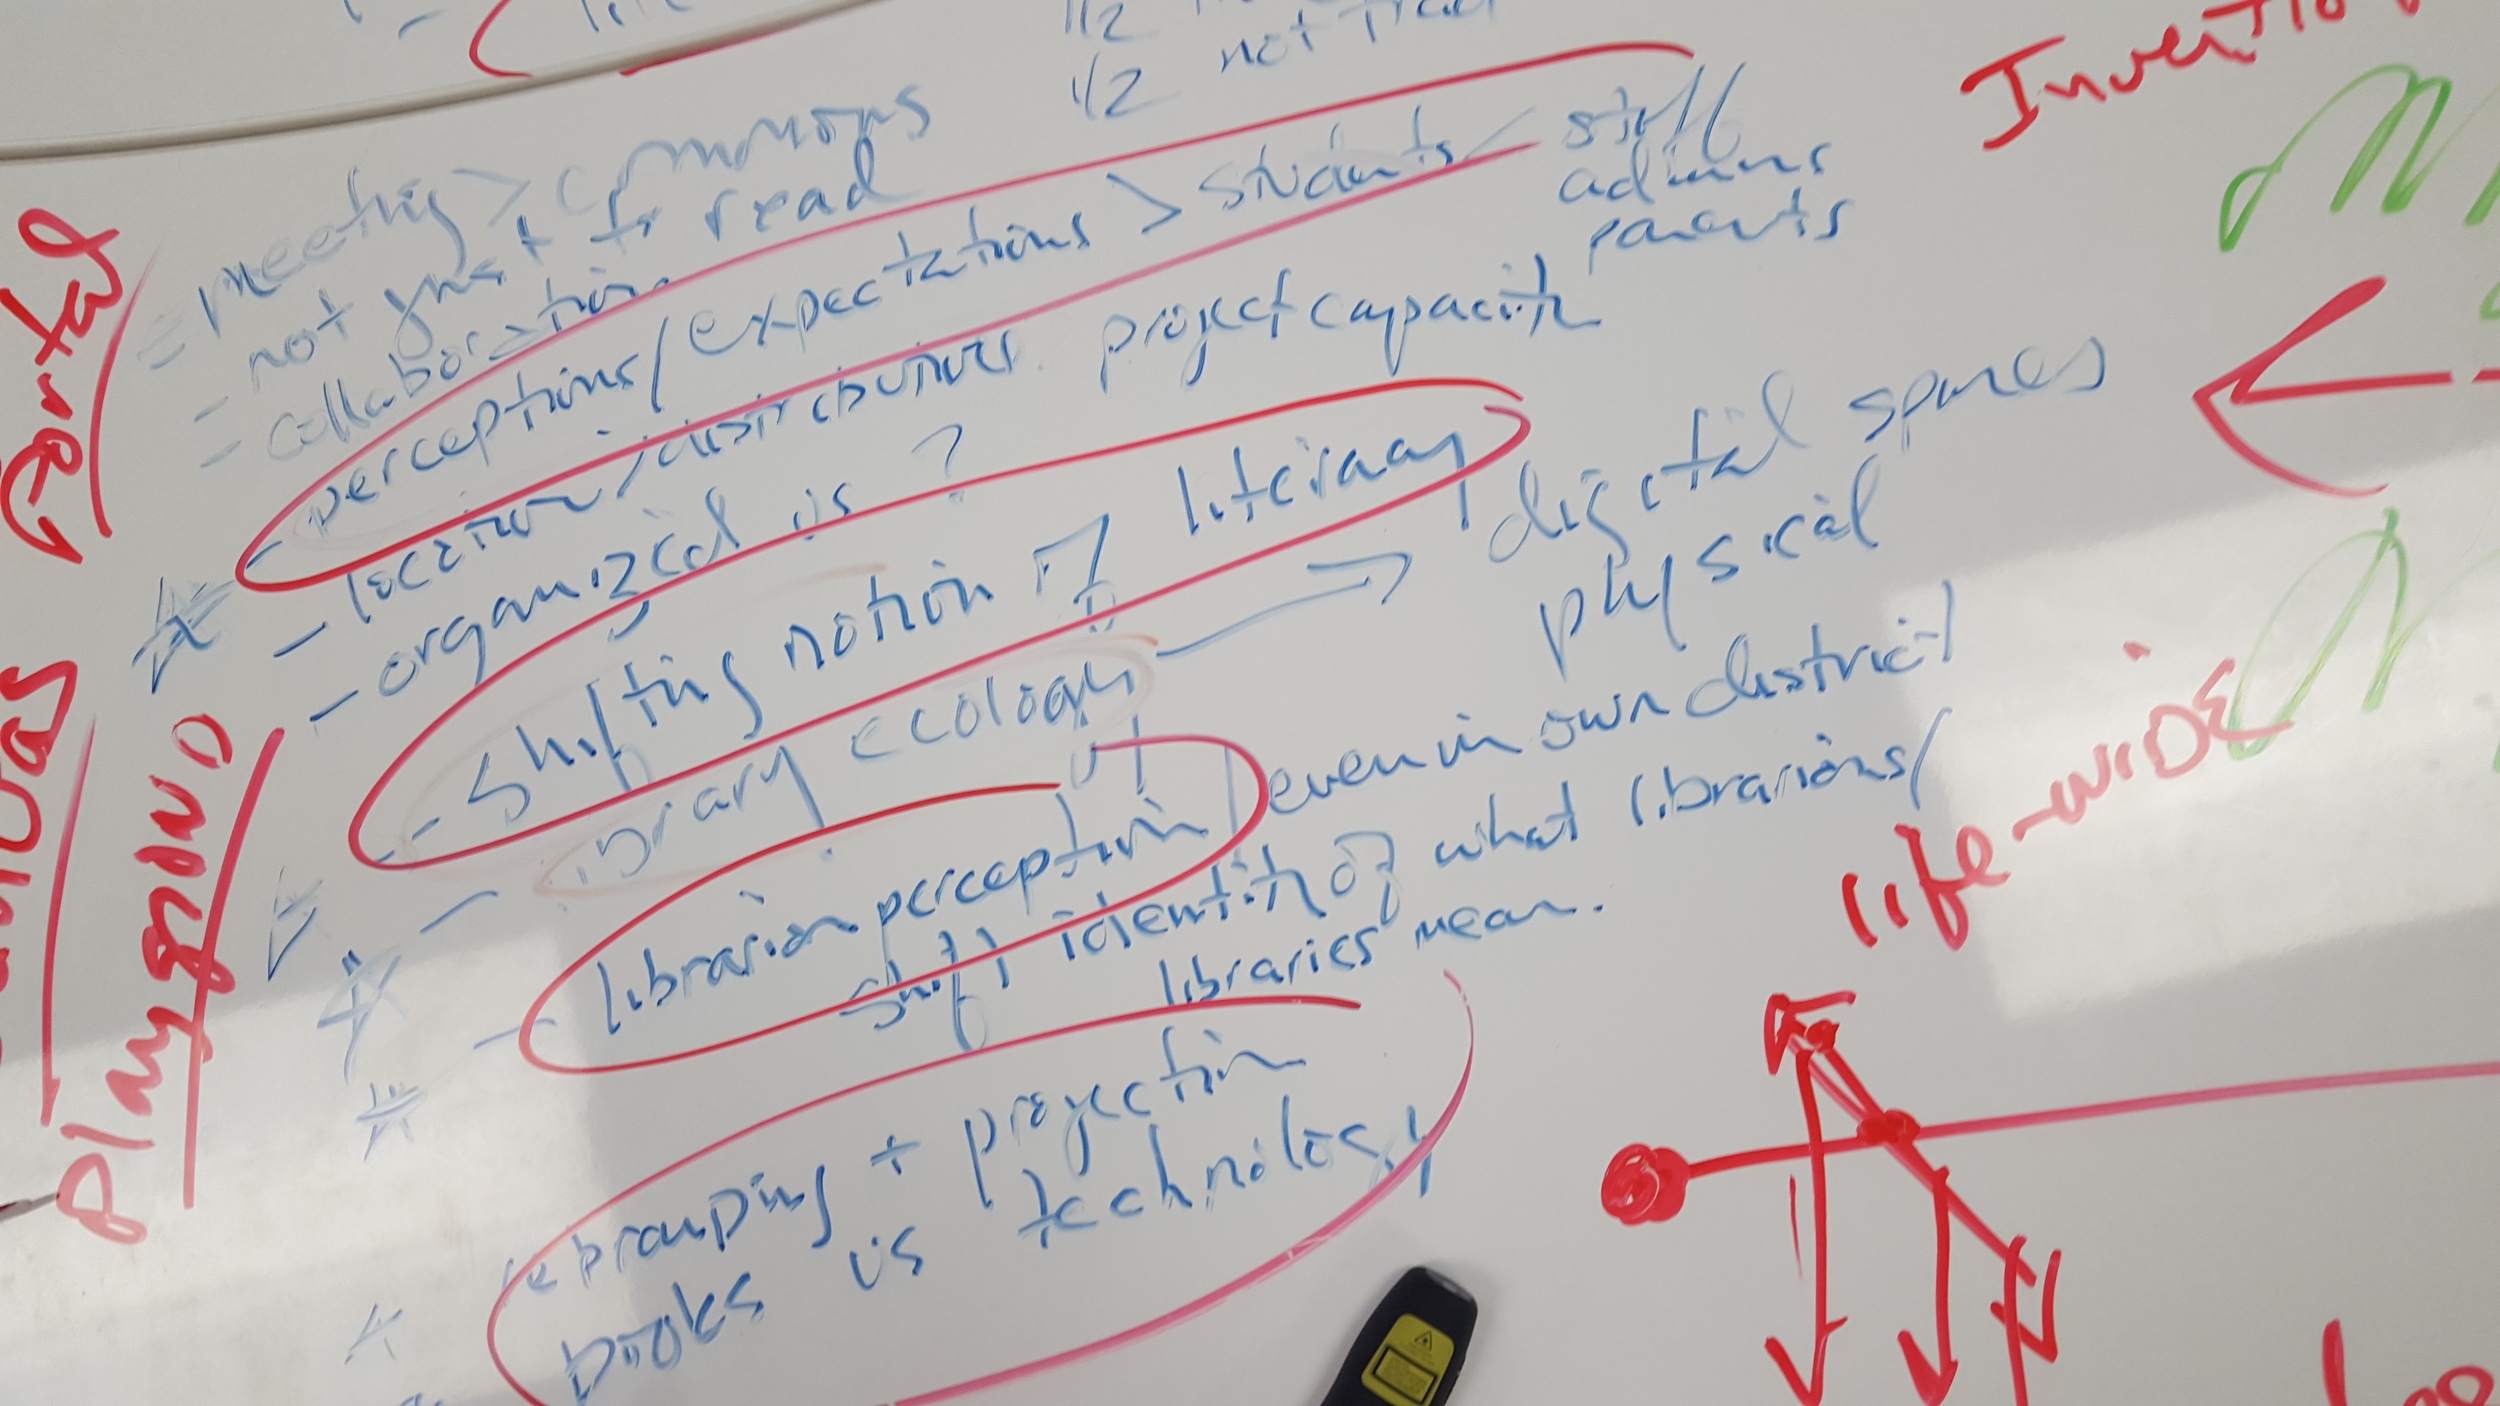 1/2
1/2 not trad
= meeting > commons
not just to read
- collaboration
- perceptions/expectations > students/ staff
admins
parents
- location/distributives. project capacity
- organized vs ?
- shifting notion of literacy
- library ecology → digital spaces
physical
- librarian perception / even in own district
shift identity of what librarians/
libraries mean.
rebranding + projection
books vs technology
Portal
Playground
Invention
life-wide